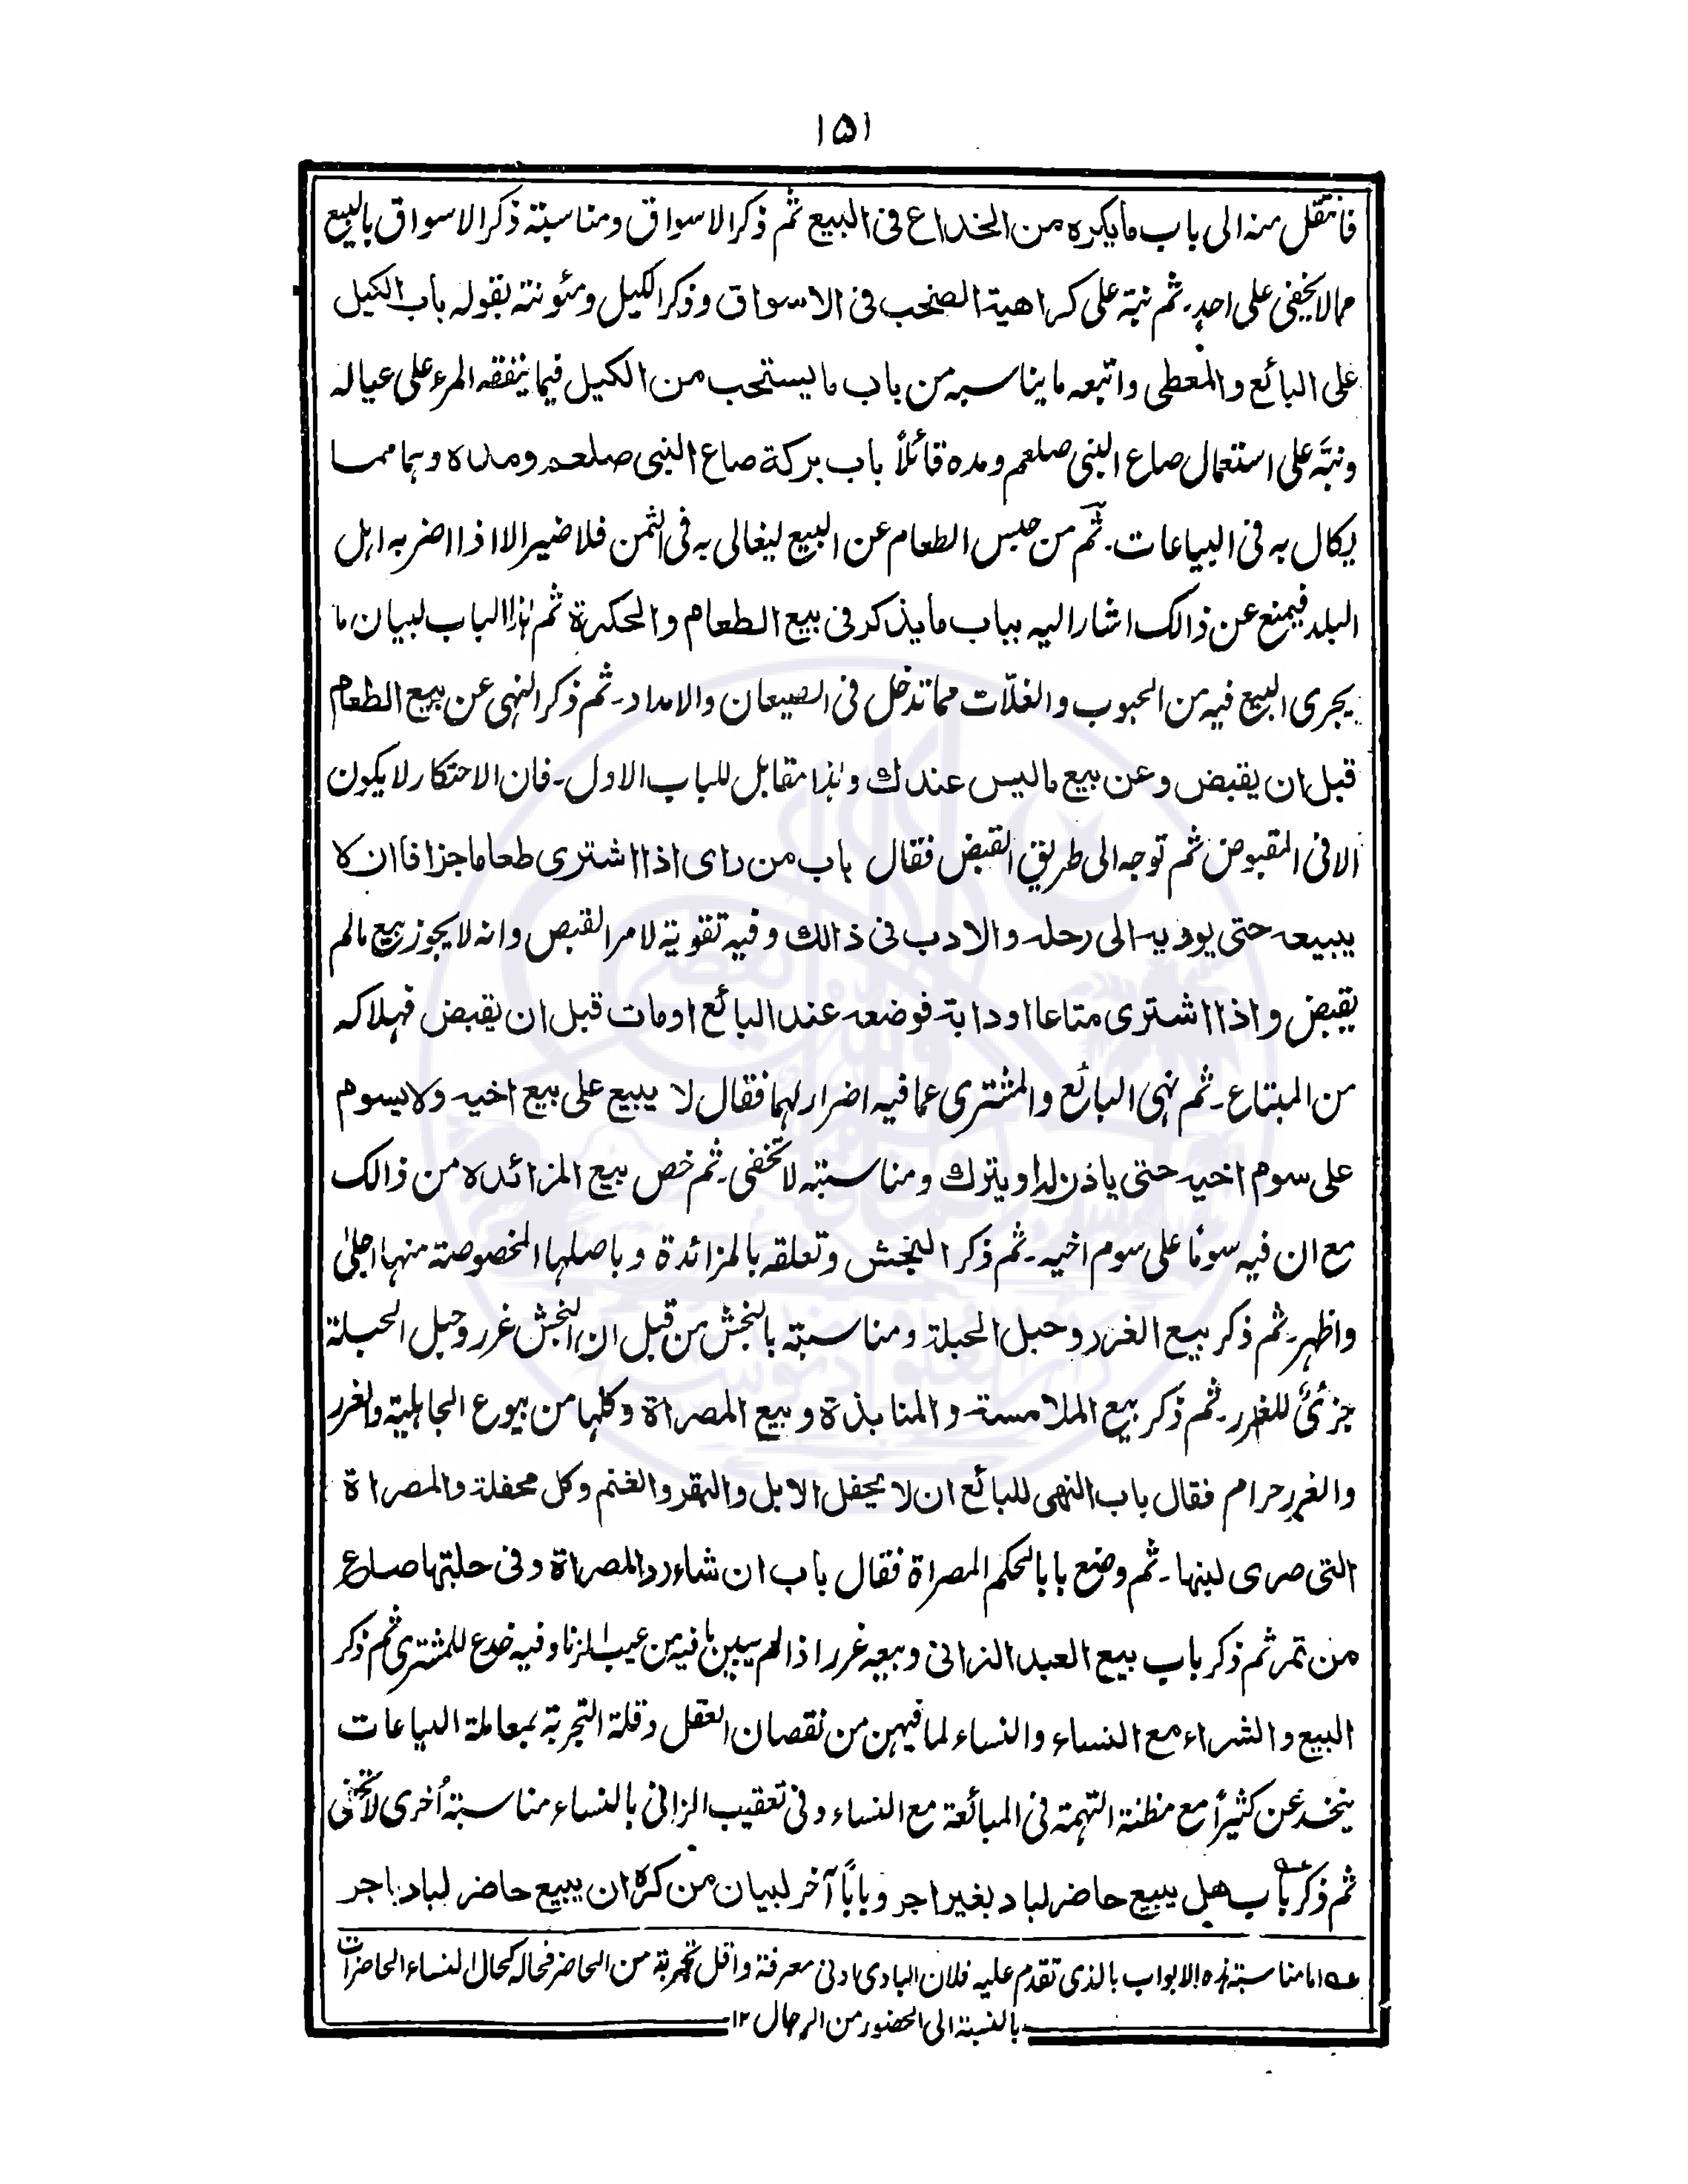 ۱۵۱
فانتقل منه الى باب ما يكره من الخداع فى البيع ثم ذكر الاسواق ومناسبة ذكر الاسواق بالبيع
مما لا يخفى على احد۔ ثم نبّه على كراهية الصخب فى الاسواق وذكر الكيل ومئونته بقوله باب الكيل
على البائع والمعطى واتبعه ما يناسبه من باب ما يستحب من الكيل فيما ينفقه المرء على عياله
ونبَّه على استعمال صاع النبى صلعم ومده قائلاً باب بركة صاع النبى صلعم ومده وهما مما
يكال به فى البياعات۔ ثم من حبس الطعام عن البيع ليغالى به فى الثمن فلا ضير الا اذا اضر به اهل
البلد فيمنع عن ذالك اشار اليه بباب ما يذكر فى بيع الطعام والحكرة ثم هٰذا الباب لبيان ما
يجرى البيع فيه من الحبوب والغلّات مما تدخل فى الصيعان والامداد۔ ثم ذكر النهى عن بيع الطعام
قبل ان يقبض وعن بيع ما ليس عندك وهٰذا مقابل للباب الاول۔ فان الاحتكار لا يكون
الا فى المقبوض ثم توجه الى طريق القبض فقال باب من راى اذا اشترى طعاما جزافا ان لا
يبيعه حتى يوديه الى رحله والادب فى ذالك وفيه تقوية لامر القبض وانه لا يجوز بيع ما لم
يقبض واذا اشترى متاعا اودابة فوضعه عند البائع اومات قبل ان يقبض فهلاكه
من المبتاع۔ ثم نهى البائع والمشترى عما فيه اضرار لهما فقال لا يبيع على بيع اخيه ولا يسوم
على سوم اخيه حتى ياذن له او يترك ومناسبته لا تخفى۔ ثم خص بيع المزائده من ذالك
مع ان فيه سومًا على سوم اخيه۔ ثم ذكر النجش وتعلقه بالمزائدة وباصلها المخصوصة منها اجلىٰ
واظهر۔ ثم ذكر بيع الغرر وحبل الحبلة ومناسبته بالنجش من قبل ان النجش غرر وحبل الحبلة
جزئىٌ للغرر۔ ثم ذكر بيع الملامسة والمنابذة وبيع المصراة وكلها من بيوع الجاهلية والغرر
والغرر حرام فقال باب النهى للبائع ان لا يحفل الابل والبقر والغنم وكل محفلة والمصراة
التى صرى لبنها۔ ثم وضع بابا لحكم المصراة فقال باب ان شاء رد المصراة وفى حلبتها صاع
من تمر ثم ذكر باب بيع العبد الزانى وبيعه غرر اذا لم يبين ما فيه من عيب الزنا وفيه خدع للمشترى ثم ذكر
البيع والشراء مع النساء والنساء لما فيهن من نقصان العقل وقلة التجربة بمعاملة البياعات
ينخدعن كثيرًا مع مظنة التهمة فى المبائعة مع النساء وفى تعقيب الزانى بالنساء مناسبة اُخرى لا تخفى
ثم ذكر باب هل يبيع حاضر لباد بغير اجر وبابًا آخر لبيان من كره ان يبيع حاضر لباد باجر
عه اما مناسبة هذه الابواب بالذى تقدم عليه فلان البادى ادنى معرفة واقل تجربة من الحاضر فحاله كحال النساء الحاضرات
بالنسبة الى الحضور من الرجال ۱۲